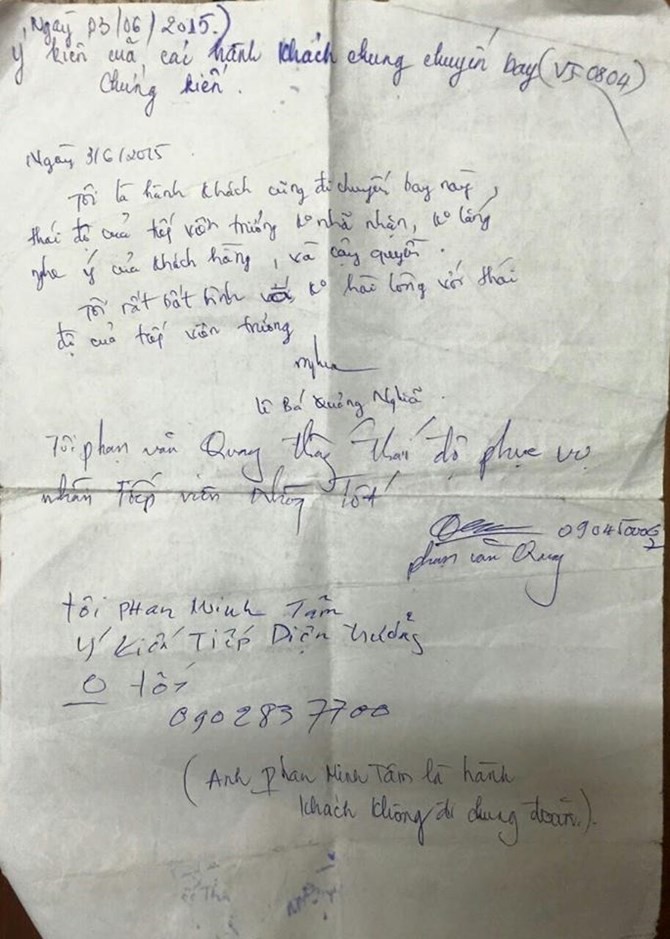 Ngày 03/06/2015.)
Ý kiến của các hành khách chung chuyến bay (VJ0804)
Chứng kiến.
Ngày 3/6/2015
Tôi là hành khách cùng đi chuyến bay này,
thái độ của tiếp viên trưởng ko nhã nhặn, ko lắng
nghe ý của khách hàng, và cậy quyền.
Tôi rất bất bình và ko hài lòng với thái
độ của tiếp viên trưởng
Nghĩa
Lê Bá Quảng Nghĩa.
Tôi phạn văn Quang thấy thái độ phục vụ
nhân Tiếp viên Tốt
phạn văn Quang
tôi PHAN MINH TÂM
Ý kiến TIẾP DIỆN trưởng
0 tốt
0902837700
(Anh Phan Minh Tâm là hành
khách không đi chung đoàn.).